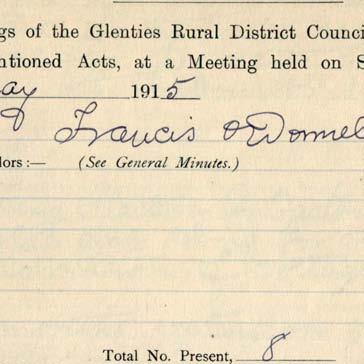 gs of the Glenties Rural District Counci
ntioned Acts, at a Meeting held on S
ay 1915
Francis O'Donnel
lors :— (See General Minutes.)
Total No. Present, 8